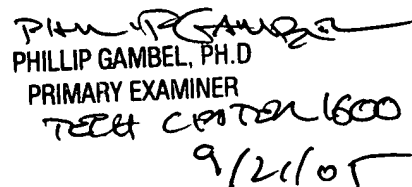 PHILLIP GAMBEL
PHILLIP GAMBEL, PH.D
PRIMARY EXAMINER
TECH CENTER 1600
9/21/05